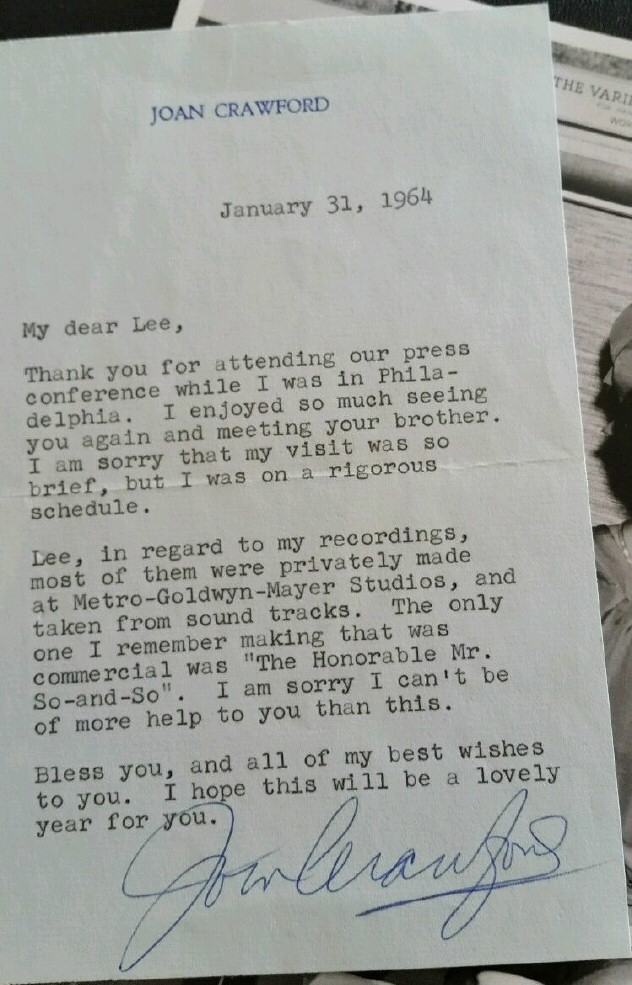 JOAN CRAWFORD
January 31, 1964
My dear Lee,
Thank you for attending our press
conference while I was in Phila-
delphia.  I enjoyed so much seeing
you again and meeting your brother.
I am sorry that my visit was so
brief, but I was on a rigorous
schedule.
Lee, in regard to my recordings,
most of them were privately made
at Metro-Goldwyn-Mayer Studios, and
taken from sound tracks.  The only
one I remember making that was
commercial was "The Honorable Mr.
So-and-So".  I am sorry I can't be
of more help to you than this.
Bless you, and all of my best wishes
to you.  I hope this will be a lovely
year for you.
Joan Crawford
THE